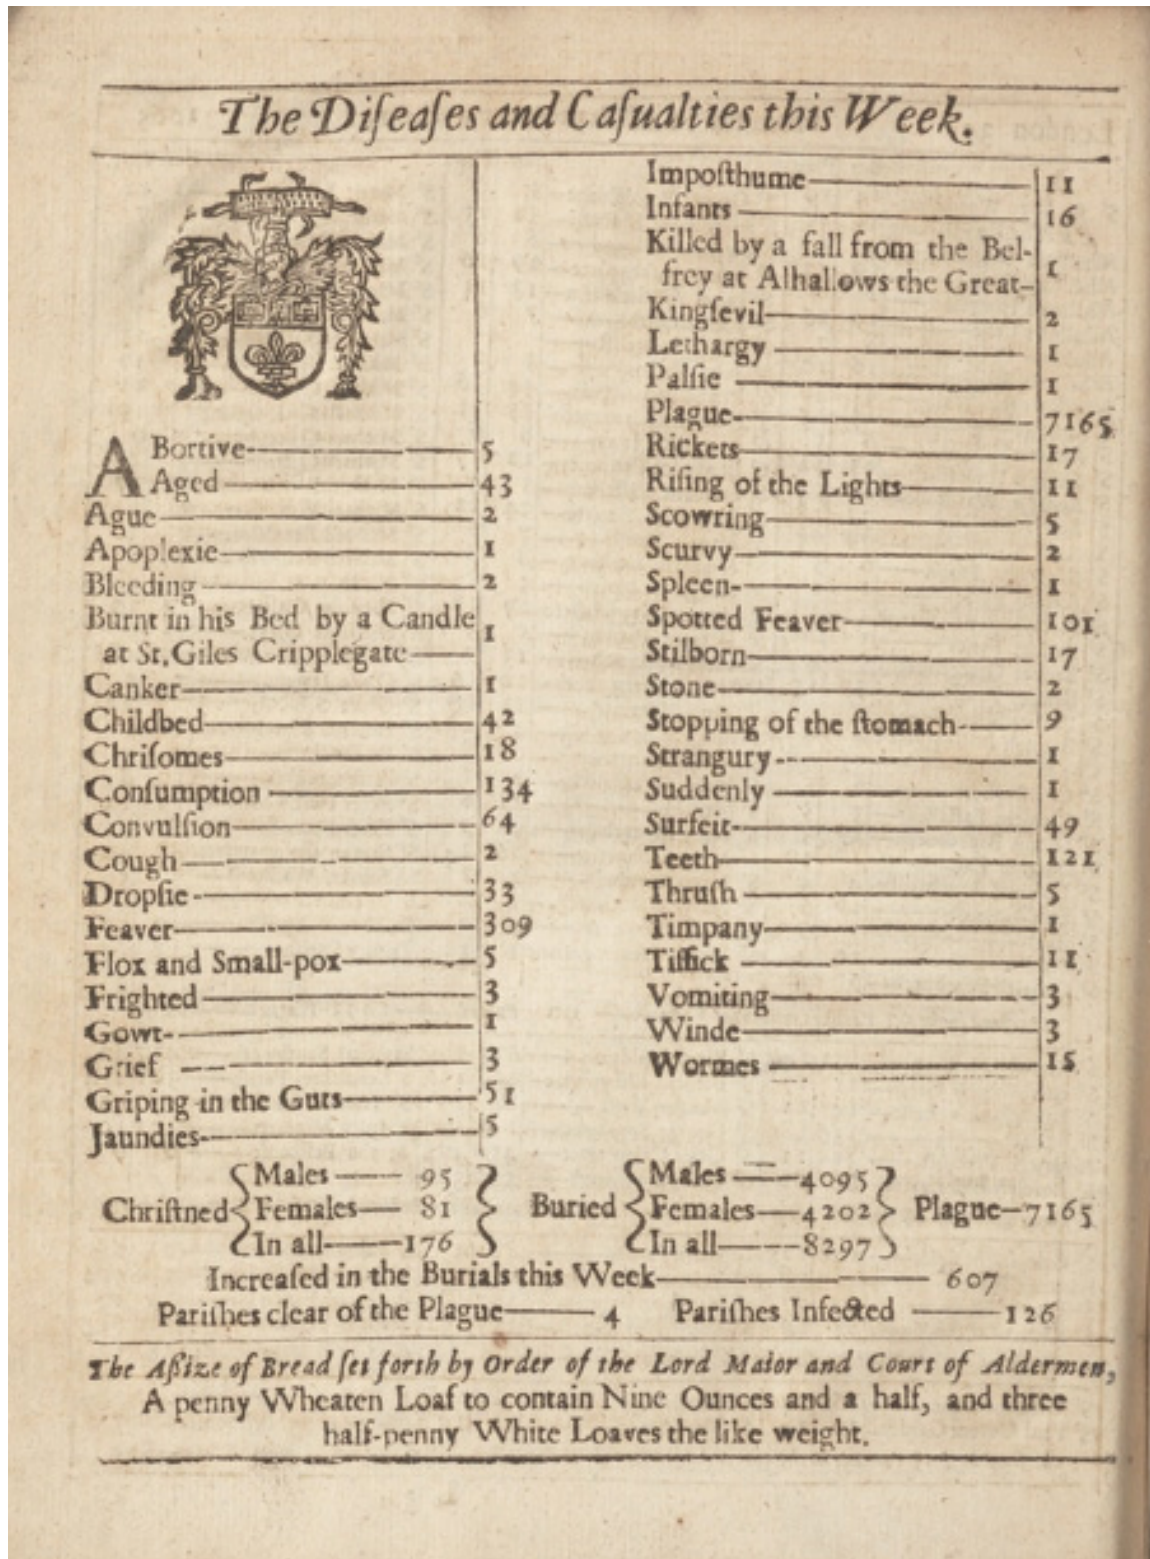 The Diſeaſes and Caſualties this Week.
ABortive 5
Aged 43
Ague 2
Apoplexie 1
Bleeding 2
Burnt in his Bed by a Candle
at St. Giles Cripplegate 1
Canker 1
Childbed 42
Chriſomes 18
Conſumption 134
Convulſion 64
Cough 2
Dropſie 33
Feaver 309
Flox and Small-pox 5
Frighted 3
Gowt 1
Grief 3
Griping in the Guts 51
Jaundies 5
Impoſthume 11
Infants 16
Killed by a fall from the Bel-
frey at Alhallows the Great 1
Kingſevil 2
Lethargy 1
Palſie 1
Plague 7165
Rickets 17
Riſing of the Lights 11
Scowring 5
Scurvy 2
Spleen 1
Spotted Feaver 101
Stilborn 17
Stone 2
Stopping of the ſtomach 9
Strangury 1
Suddenly 1
Surfeit 49
Teeth 121
Thruſh 5
Timpany 1
Tiſſick 11
Vomiting 3
Winde 3
Wormes 15
Chriſtned
Males 95
Females 81
In all 176
Buried
Males 4095
Females 4202
In all 8297
Plague 7165
Increaſed in the Burials this Week 607
Pariſhes clear of the Plague 4 Pariſhes Infected 126
The Aſſize of Bread ſet forth by Order of the Lord Maior and Court of Aldermen,
A penny Wheaten Loaf to contain Nine Ounces and a half, and three
half-penny White Loaves the like weight.